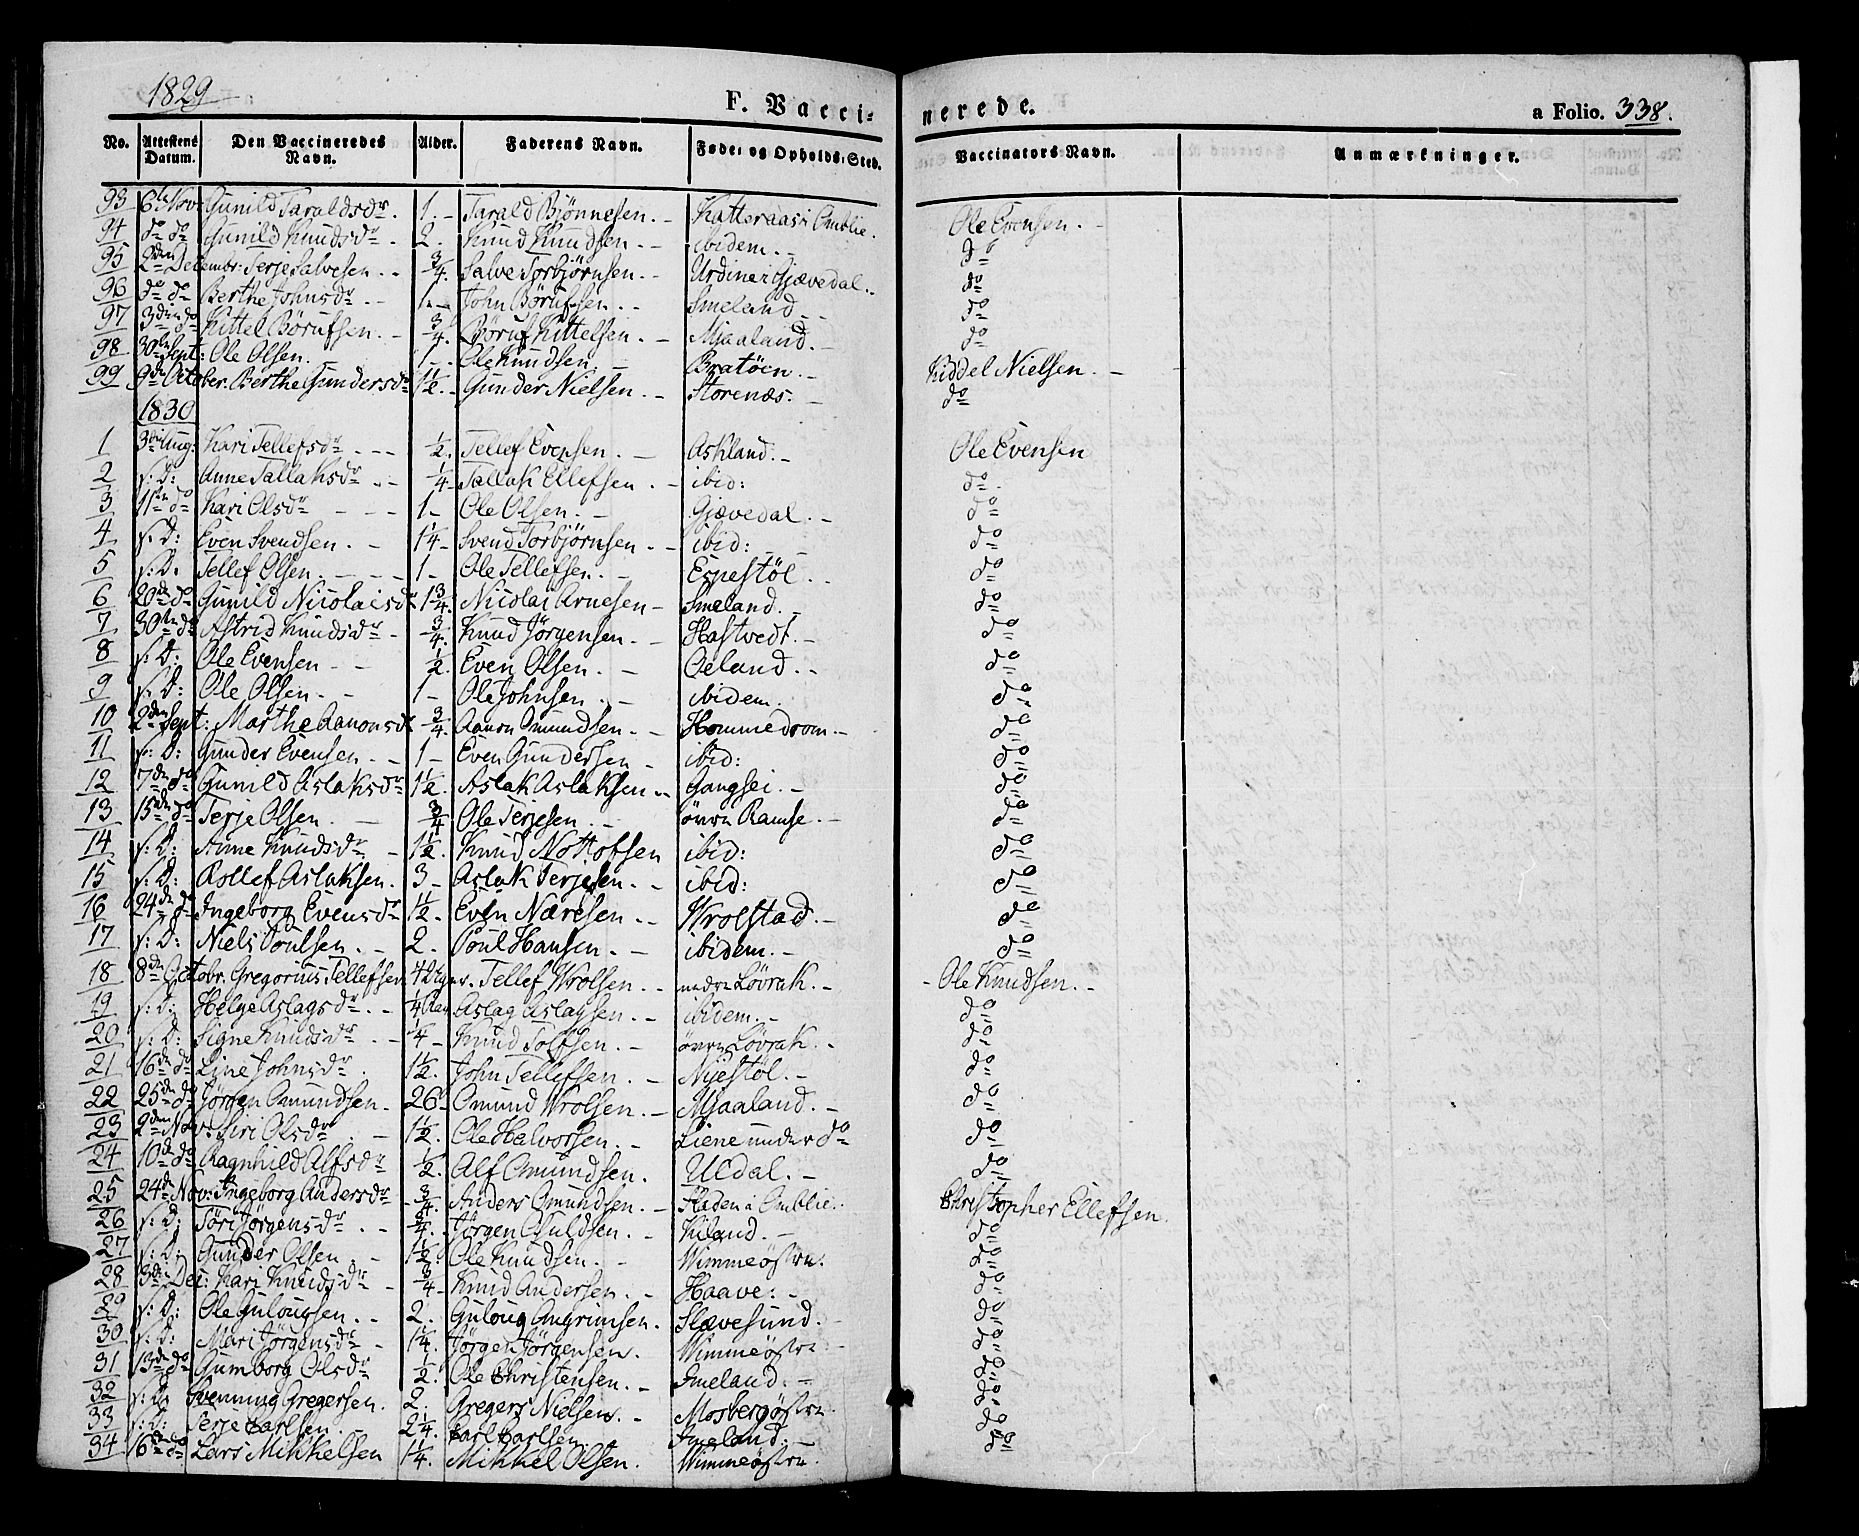 1829
F. Vacci-
nerede.
a Folio. 338.
No. Attestens Datum. Den Vaccineredes Navn. Alder. Faderens Navn. Føde- og Opholds-Sted. Vaccinators Navn. Anmærkninger.
93 6te Nov: Gunild Taraldsdr. 1. - Tarald Bjønnesen. - Katteraas i Omblie. Ole Evensen. -
94 do do Gunild Knudsdr - 2. - Knud Knudsen. - ibidem. - do
95 2den Decembr: Terje Salvesen. - - 3/4. Salve Torbjørnsen. - Urdiner i Gjævedal. - do
96 do do Berthe Johnsdr. - 1. - John Børufsen. - Smeland. - do
97 3die do Kittel Børufsen. - 3/4. Børuf Kittelsen. - Mjaaland. - do
98 30te Sept: Ole Olsen. - 1 - Ole Knudsen - Bratöen. - Kiddel Nielsen. -
99 9de October. Berthe Gundersdr 1 1/2. - Gunder Nielsen. - Storenæs. - do
1830
1 3die Aug: Kari Tellefsdr. - - 1/2. Tellef Evensen. - Askland. - Ole Evensen
2 s: D: Anne Tallaksdr. - - 1/4 - Tallak Ellefsen. - ibid: do.
3 11te do Kari Olsdr - - - 1 - Ole Olsen. - Gjævedal. - do
4 s: D: Even Svendsen. - 1 1/4 - Svend Torbjørnsen. - ibid: - do
5 s: D. Tellef Olsen. - - - 1 - Ole Tellefsen. - Espestöl. - do
6 20de do Gunild Nicolaisdr 1 3/4. Nicolai Arnesen - Smeland. - do
7 30te do Astrid Knudsdr - 3/4. Knud Jörgensen. - Hastvedt. - do
8 s: D: Ole Evensen - - 1/2. Even Olsen. - Oeland. - do
9 s: D: Ole Olsen. - 1 - Ole Johnsen. - ibidem. do
10 2den Sept: Marthe Aanonsdr 3/4. Aanon Omundsen. - Hommedrom. - do
11 s: D: Gunder Evensen. - - 1 - Even Gundersen - ibid: do
12 7de do Gunild Aslaksdr 1 1/2. Aslak Aslaksen. - Gangsei. - do
13 15de do Terje Olsen. - 3/4 Ole Terjesen. - övre Ramse. - do
14 s: D: Anne Knudsdr - 1 1/2. Knud Nottofsen ibid: do
15 s: D: Rollef Aslaksen. 3 - Aslak Terjesen. - ibid: do
16 24de do Ingeborg Evensdr 1 1/2. Even Næresen. - Wrolstad. - do
17 s: D: Niels Poulsen. - 2. Poul Hansen. - ibidem. - do
18 8de Octobr. Gregorius Tellefsen Tellef Wrolsen. - nedre Lövrak. - - Ole Knudsen. -
19 s: D: Helge Aslagsdr. - 1/4 Aar Aslag Aslagsen. - ibidem. - do
20 s: D: Signe Knudsdr. - 1/4 - Knud Tolfsen. - övre Lövrak. - do
21 16de do Line Johnsdr. 1 1/2. John Tellefsen. - Nyestöl. - do
22 25de do Jörgen Omundsen. 26 - Omund Wrolsen. - Mjaaland. - do
23 2den Nov: Siri Olsdr. - 1 1/2. Ole Halvorsen. - Liene under do do
24 10de do Ragnhild Alfsdr 1/2. Alf Omundsen. Uldal. - do
25 24de Nov: Ingeborg Andersdr 3/4. Anders Omundsen. - Staden i Omblie. - Christopher Ellefsen.
26 s: D: Töri Jörgensdr. - 3/4. Jörgen Osuldsen. - Kiland. - do
27 s: D: Gunder Olsen. - 1 1/2. Ole Knudsen. - Wimmeöstre. do
28 3die Dec: Kari Knudsdr - 3/4 - Knud Andersen. - Haave: - do
29 s: D: Ole Gulougsen. - 2. Guloug Angrimsen. Slævesund. - do
30 s: D: Mari Jörgensdr - 1 1/4. Jörgen Jörgensen. Wimmeöstre - do
31 13de do Gumborg Olsdr 1/2. Ole Christensen. - Imeland. - do
32 s: D: Svenning Gregersen. 2. Gregers Nielsen. - Mosbergöstre. do
33 s: D: Terje Carlsen. - 2 1/4. Carl Carlsen Imeland. - do
34 16de do Lars Mikkelsen 1 1/4. Mikkel Olsen. Wimmeöstre. do